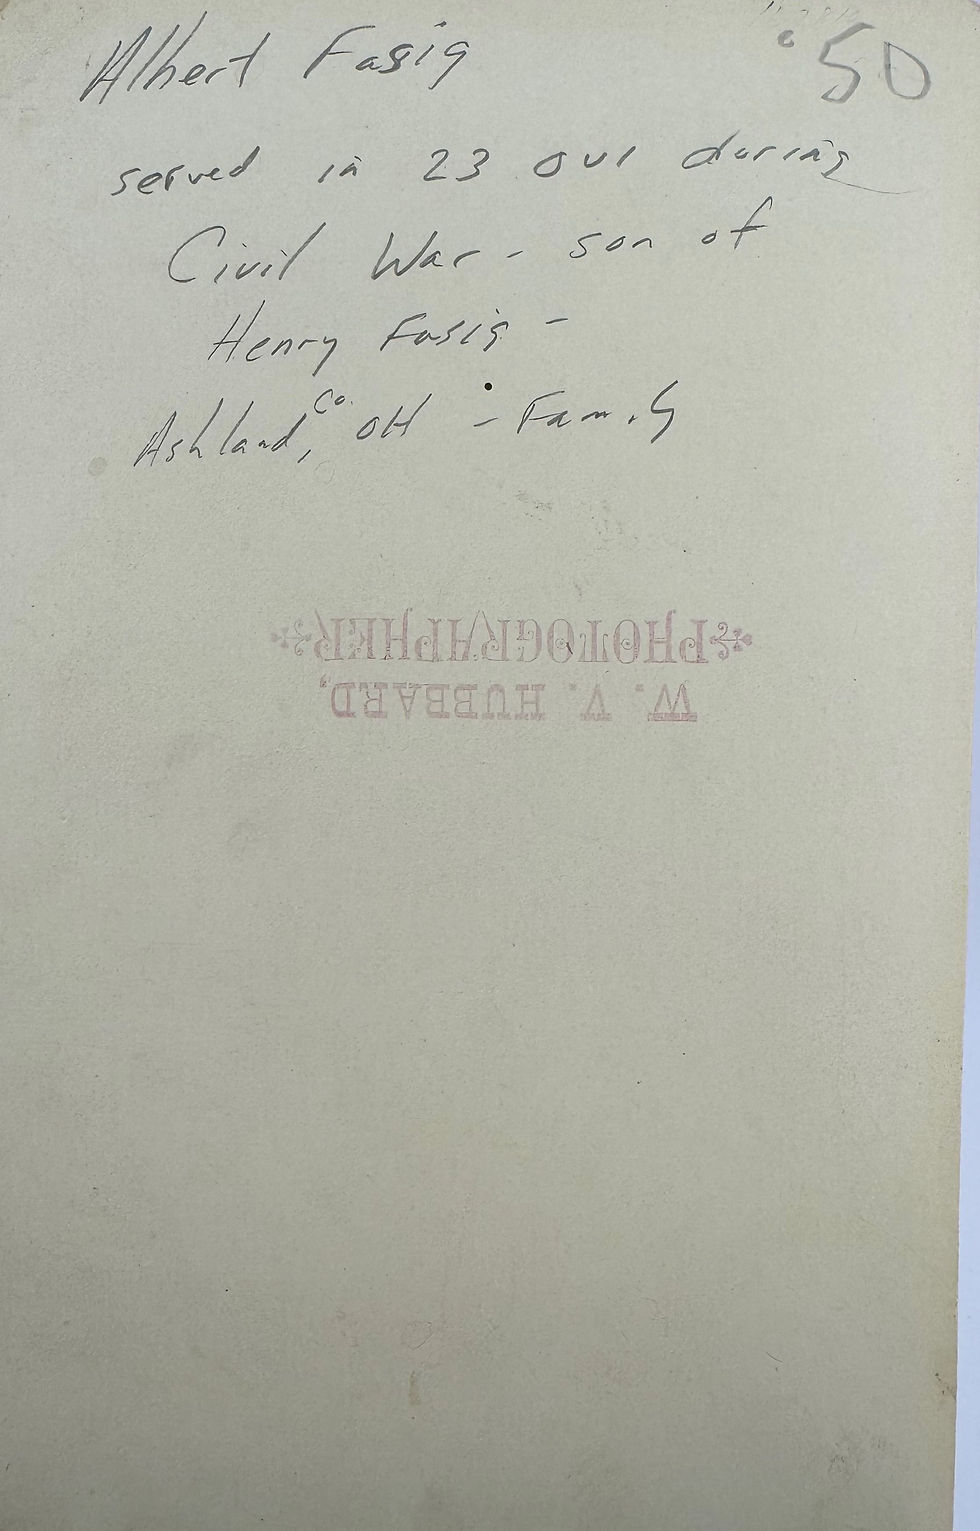 Albert Fasig
50
served in 23 OVI during
Civil War - son of
Henry Fasig -
Ashland Co., OH - Family
W. V. HUBBARD,
PHOTOGRAPHER